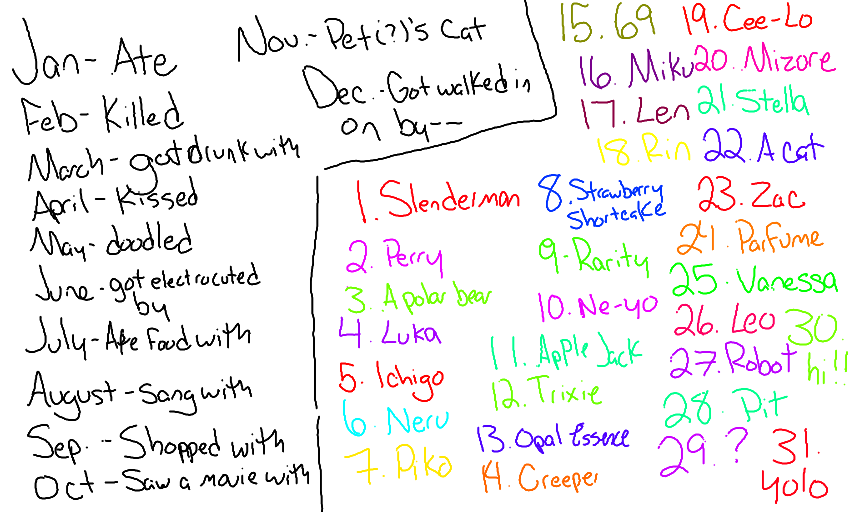 Jan- Ate
Feb- Killed
March- got drunk with
April- Kissed
May- doodled
June- got electrocuted
by
July- Ate food with
August- Sang with
Sep. - Shopped with
Oct- Saw a movie with
Nov.- Pet(?)'s cat
Dec.- Got walked in
on by--
1. Slenderman
2. Perry
3. A polar bear
4. Luka
5. Ichigo
6. Neru
7. Piko
8. Strawberry
Shortcake
9- Rarity
10. Ne-yo
11. Apple Jack
12. Trixie
13. Opal Essence
14. Creeper
15. 69
16. Miku
17. Len
18. Rin
19. Cee-Lo
20. Mizore
21. Stella
22. A cat
23. Zac
24. Parfume
25. Vanessa
26. Leo
27. Robot
28. Pit
29. ?
30.
hi!!
31.
yolo